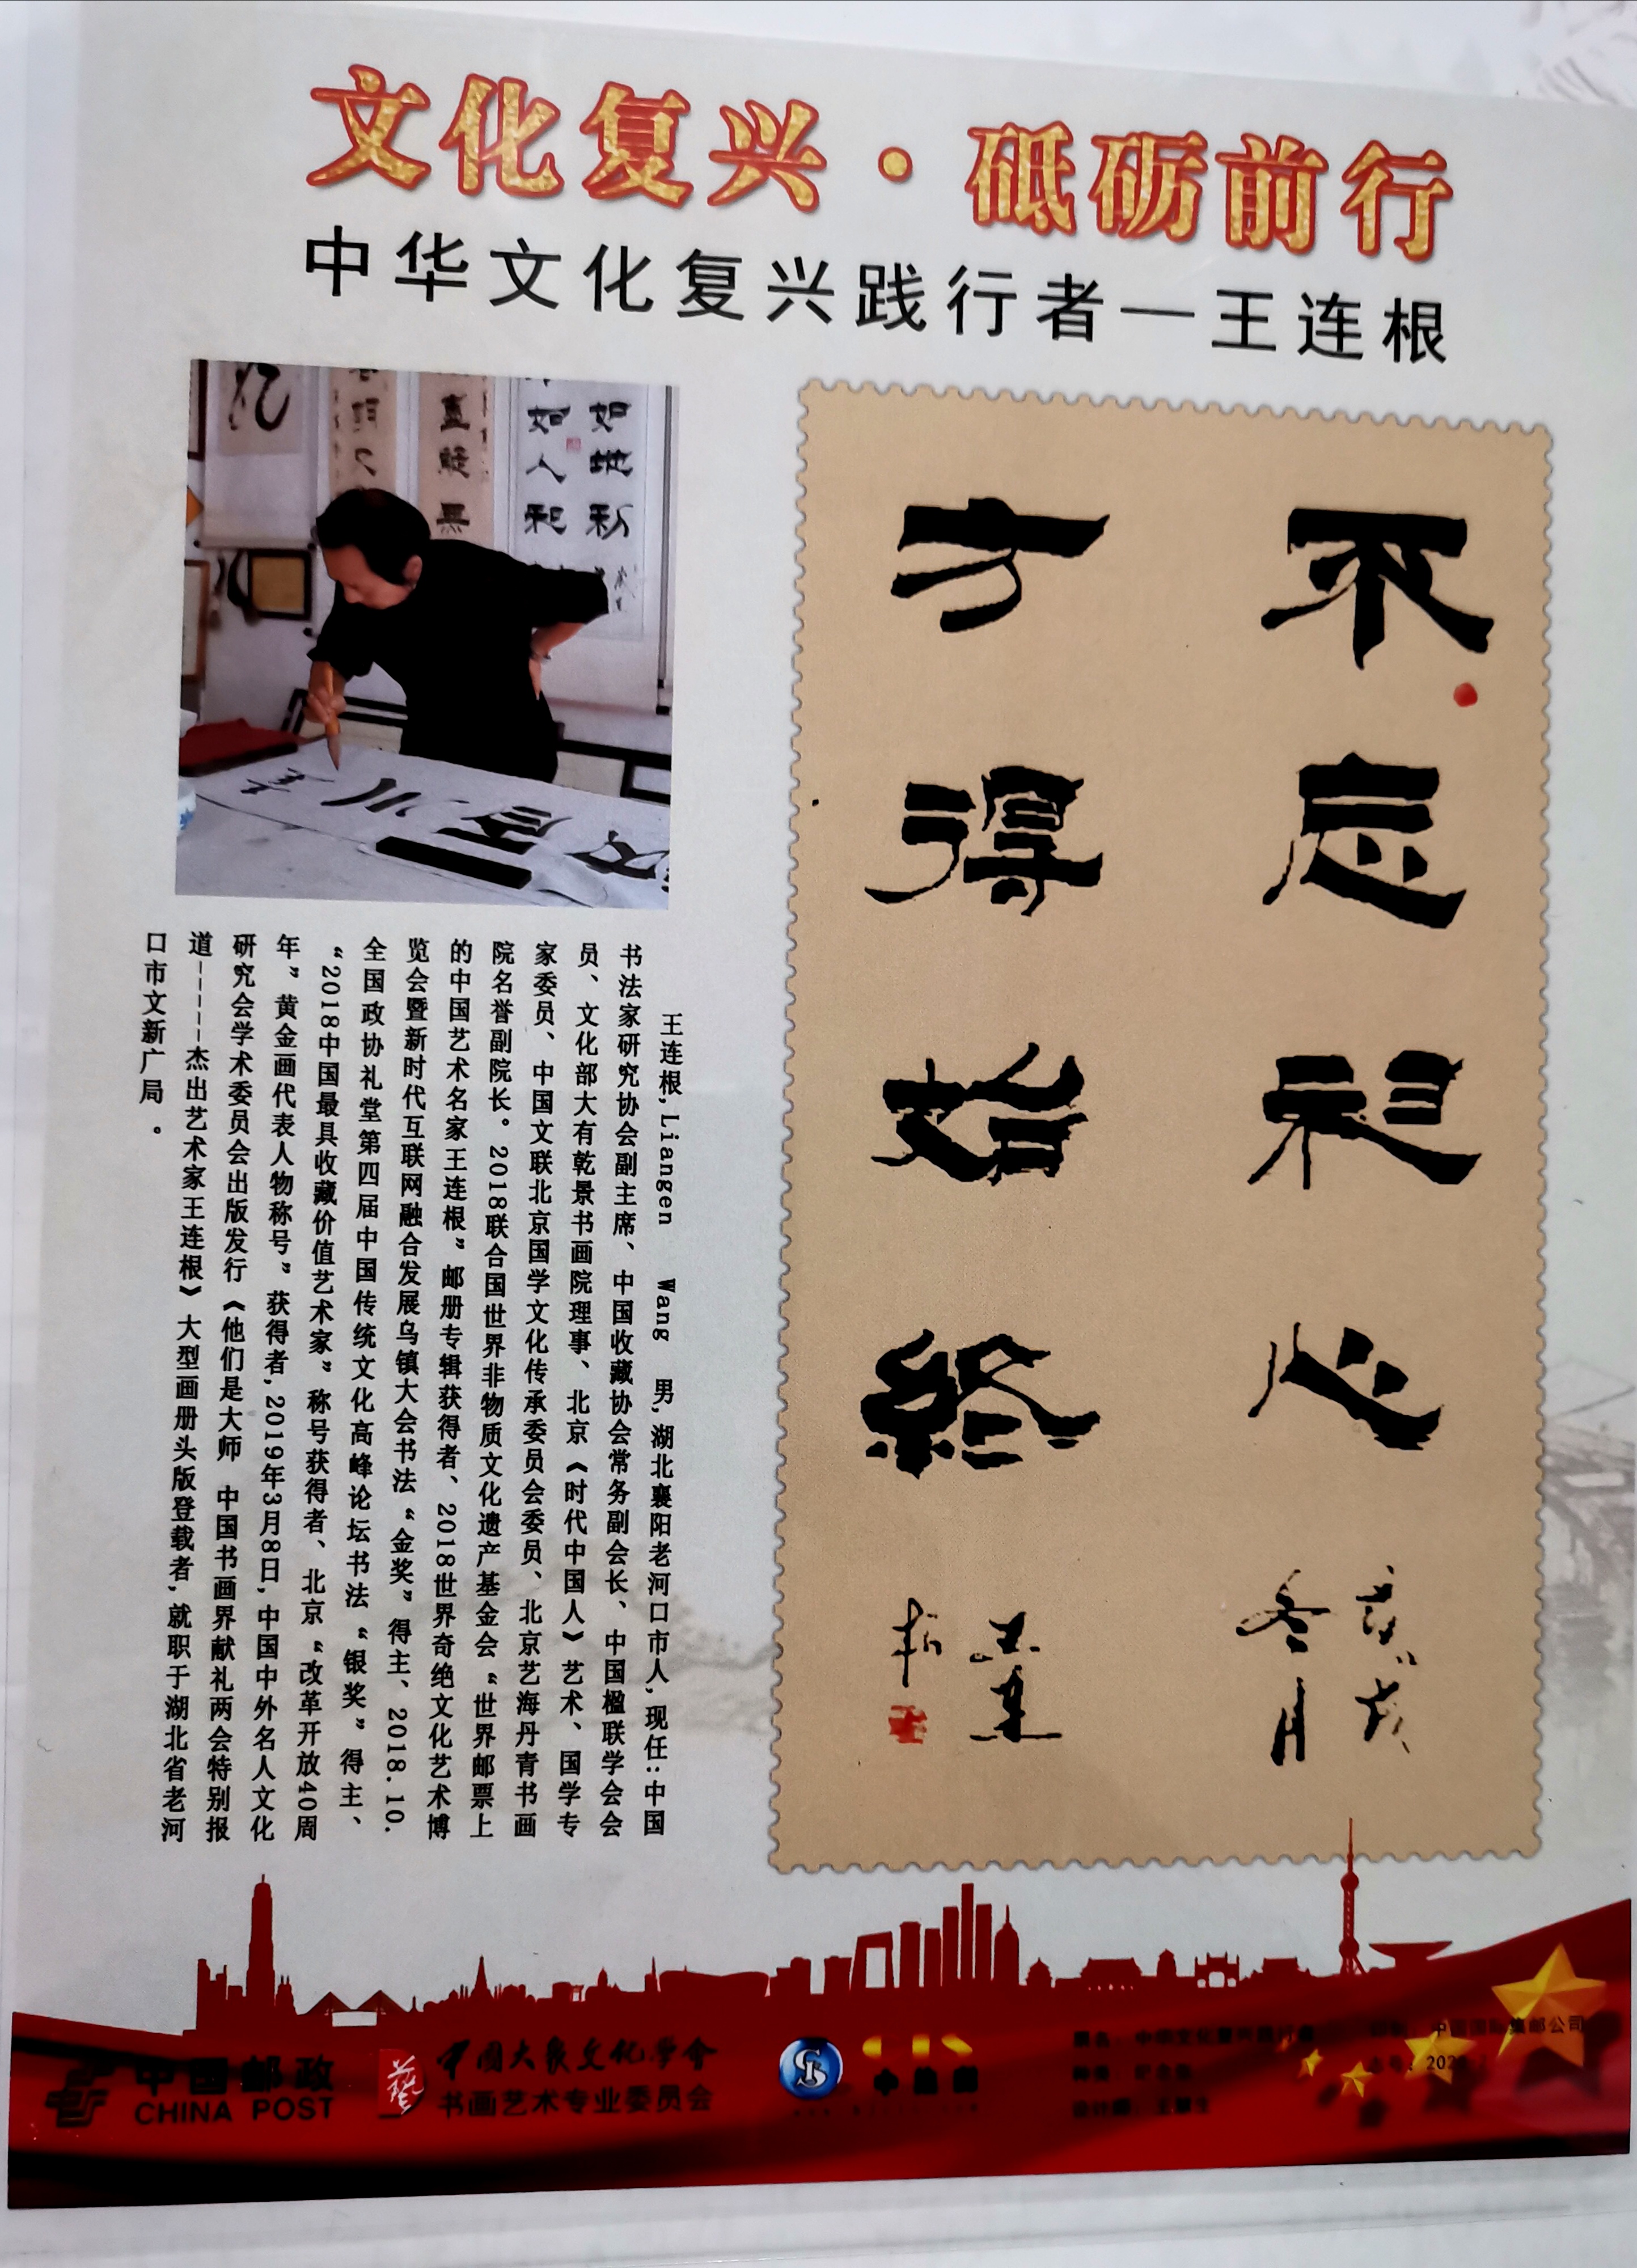 文化复兴·砥砺前行
中华文化复兴践行者—王连根
不忘初心
方得始终
冬月
王连根
如地利
如人和
王连根,Liangen Wang 男,湖北襄阳老河口市人,现任:中国
书法家研究协会副主席、中国收藏协会常务副会长、中国楹联学会会
员、文化部大有乾景书画院理事、北京《时代中国人》艺术、国学专
家委员、中国文联北京国学文化传承委员会委员、北京艺海丹青书画
院名誉副院长。2018联合国世界非物质文化遗产基金会“世界邮票上
的中国艺术名家王连根”邮册专辑获得者、2018世界奇绝文化艺术博
览会暨新时代互联网融合发展乌镇大会书法“金奖”得主、2018.10.
全国政协礼堂第四届中国传统文化高峰论坛书法“银奖”得主、
“2018中国最具收藏价值艺术家”称号获得者、北京“改革开放40周
年”黄金画代表人物称号”获得者,2019年3月8日,中国中外名人文化
研究会学术委员会出版发行《他们是大师 中国书画界献礼两会特别报
道-----杰出艺术家王连根》大型画册头版登载者,就职于湖北省老河
口市文新广局。
中国邮政
CHINA POST
艺
中国大众文化学会
书画艺术专业委员会
中国国际集邮公司